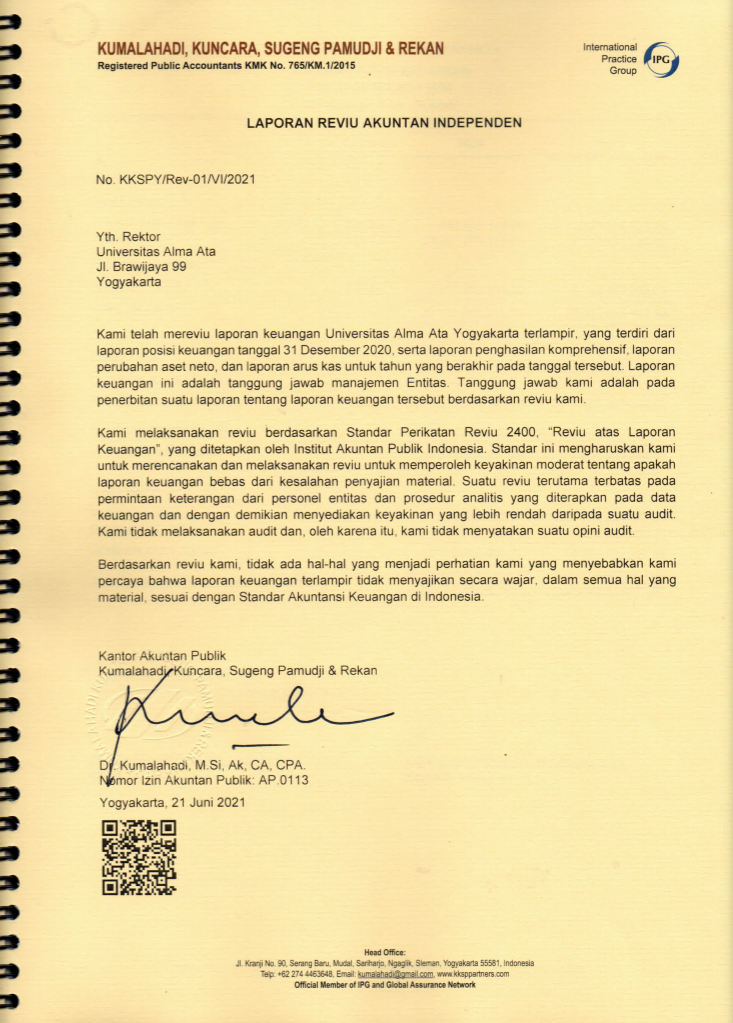 KUMALAHADI, KUNCARA, SUGENG PAMUDJI & REKAN
Registered Public Accountants KMK No. 765/KM.1/2015
International
Practice
Group
IPG
LAPORAN REVIU AKUNTAN INDEPENDEN
No. KKSPY/Rev-01/VI/2021
Yth. Rektor
Universitas Alma Ata
Jl. Brawijaya 99
Yogyakarta
Kami telah mereviu laporan keuangan Universitas Alma Ata Yogyakarta terlampir, yang terdiri dari
laporan posisi keuangan tanggal 31 Desember 2020, serta laporan penghasilan komprehensif, laporan
perubahan aset neto, dan laporan arus kas untuk tahun yang berakhir pada tanggal tersebut. Laporan
keuangan ini adalah tanggung jawab manajemen Entitas. Tanggung jawab kami adalah pada
penerbitan suatu laporan tentang laporan keuangan tersebut berdasarkan reviu kami.
Kami melaksanakan reviu berdasarkan Standar Perikatan Reviu 2400, “Reviu atas Laporan
Keuangan”, yang ditetapkan oleh Institut Akuntan Publik Indonesia. Standar ini mengharuskan kami
untuk merencanakan dan melaksanakan reviu untuk memperoleh keyakinan moderat tentang apakah
laporan keuangan bebas dari kesalahan penyajian material. Suatu reviu terutama terbatas pada
permintaan keterangan dari personel entitas dan prosedur analitis yang diterapkan pada data
keuangan dan dengan demikian menyediakan keyakinan yang lebih rendah daripada suatu audit.
Kami tidak melaksanakan audit dan, oleh karena itu, kami tidak menyatakan suatu opini audit.
Berdasarkan reviu kami, tidak ada hal-hal yang menjadi perhatian kami yang menyebabkan kami
percaya bahwa laporan keuangan terlampir tidak menyajikan secara wajar, dalam semua hal yang
material, sesuai dengan Standar Akuntansi Keuangan di Indonesia.
Kantor Akuntan Publik
Kumalahadi, Kuncara, Sugeng Pamudji & Rekan
Dr. Kumalahadi, M.Si, Ak, CA, CPA.
Nomor Izin Akuntan Publik: AP.0113
Yogyakarta, 21 Juni 2021
Head Office:
Jl. Kranji No. 90, Serang Baru, Mudal, Sariharjo, Ngaglik, Sleman, Yogyakarta 55581, Indonesia
Telp: +62 274 4463648, Email: kumalahadi@gmail.com, www.kksppartners.com
Official Member of IPG and Global Assurance Network